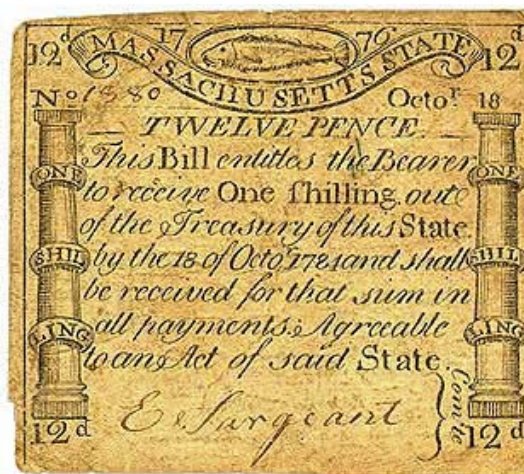 12d 17 76 12d
MASSACHUSETTS STATE
No 1380 Octor. 18
TWELVE PENCE.
This Bill entitles the Bearer
to receive One ſhilling. oute
of the Treasury of this State.
by the 18 of Octo.1784 and shall
be received for that sum in
all payments; Agreeable
to an Act of said State.
ONE
SHIL
LING
ONE
SHIL
LING
E Sargeant
Comte
12d 12d